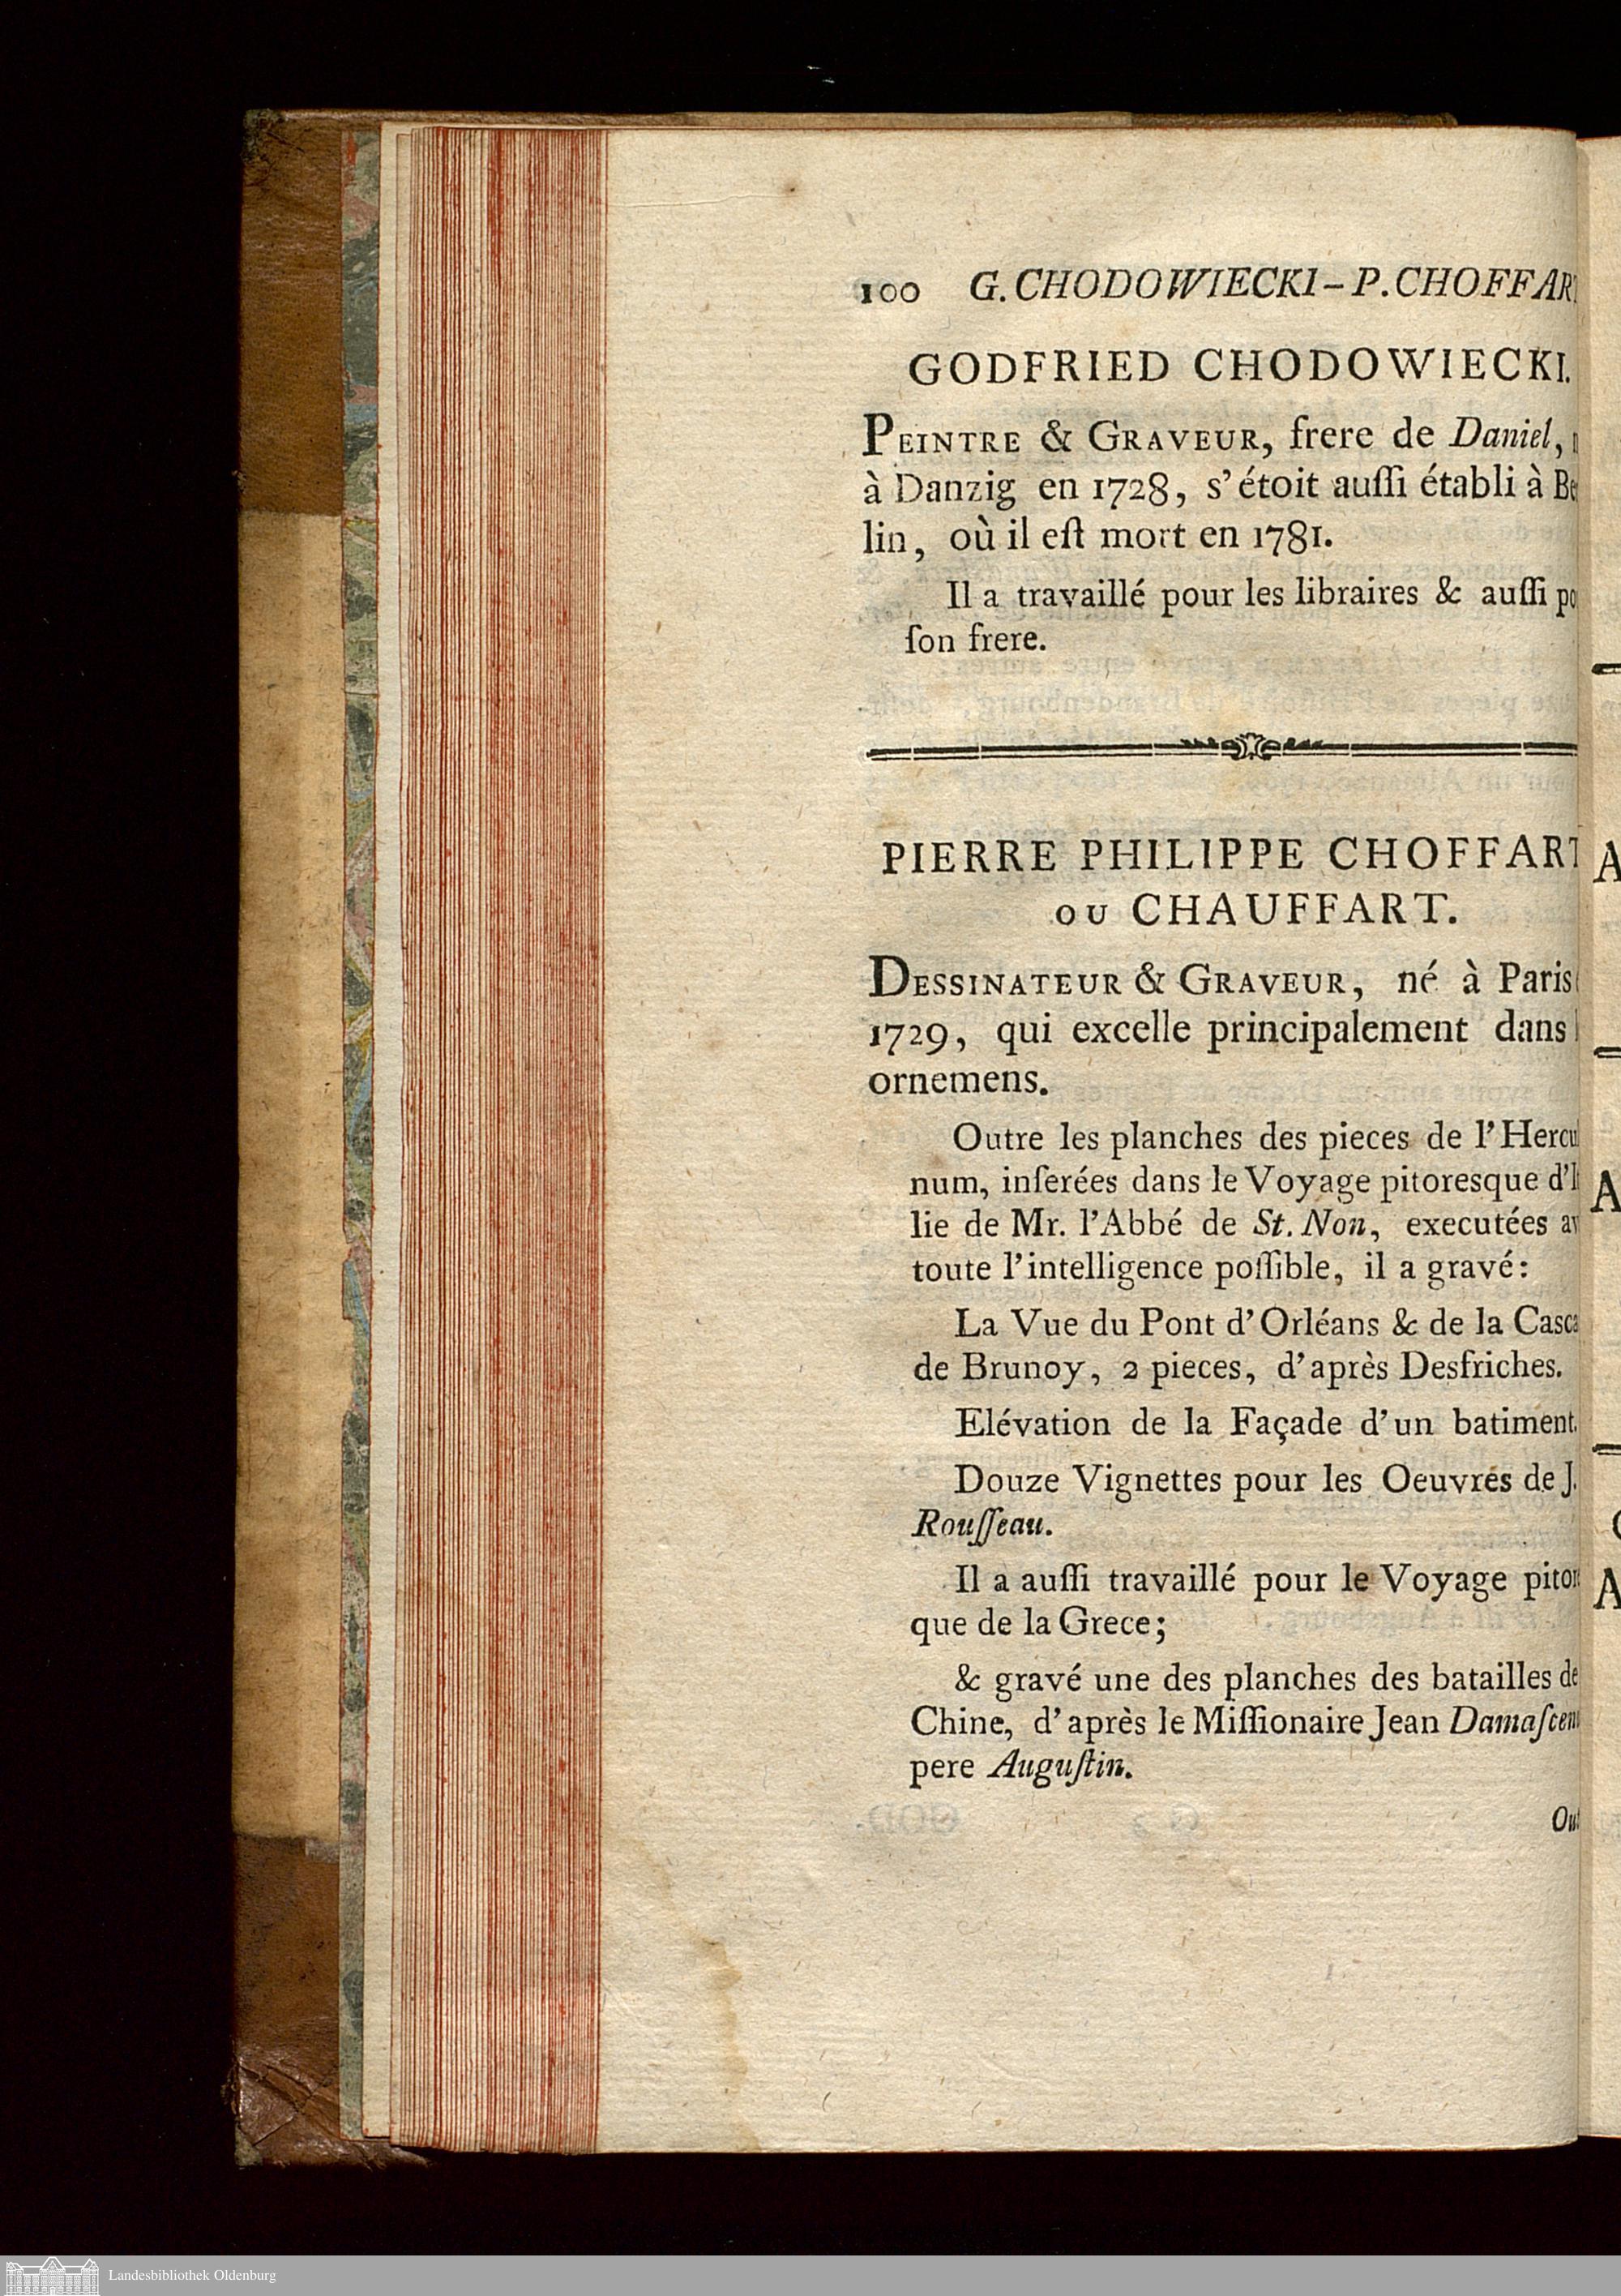 100 G. CHODOWIECKI – P. CHOFFART
GODFRIED CHODOWIECKI.
PEINTRE & GRAVEUR, frere de Daniel,
à Danzig en 1728, s'étoit auſſi établi à Ber
lin, où il eſt mort en 1781.
Il a travaillé pour les libraires & auſſi po
ſon frere.
PIERRE PHILIPPE CHOFFART
OU CHAUFFART.
DESSINATEUR & GRAVEUR, né à Paris
1729, qui excelle principalement dans
ornemens.
Outre les planches des pieces de l'Hercu
num, inſerées dans le Voyage pitoresque d'I
lie de Mr. l'Abbé de St. Non, executées av
toute l'intelligence poſſible, il a gravé:
La Vue du Pont d'Orléans & de la Casca
de Brunoy, 2 pieces, d'après Desfriches.
Elévation de la Façade d'un batiment.
Douze Vignettes pour les Oeuvres de J.
Rouſſeau.
Il a auſſi travaillé pour le Voyage pitor
que de la Grece;
& gravé une des planches des batailles de
Chine, d'après le Miſſionaire Jean Damaſcen
pere Auguſtin.
Out
A
A
A
Landesbibliothek Oldenburg